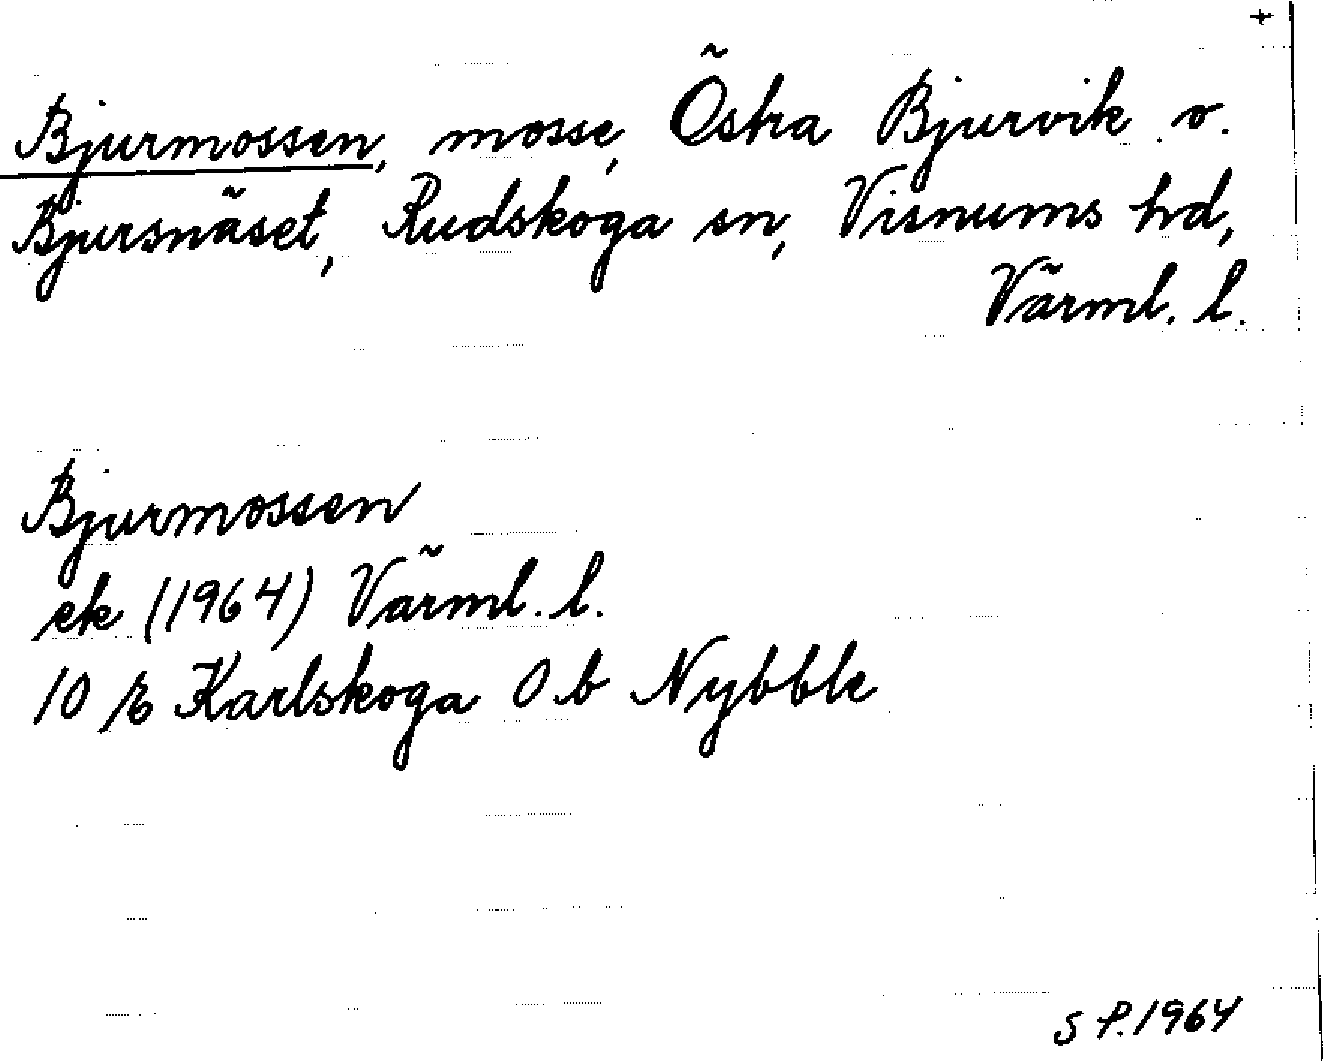 +
Bjurmossen, mosse, Östra Bjurvik o.
Bjursnäset, Rudskoga sn, Visnums hd,
Värml. l.
Bjurmossen
ek (1964) Värml. l.
10 E Karlskoga 0 b Nybble
S P. 1964